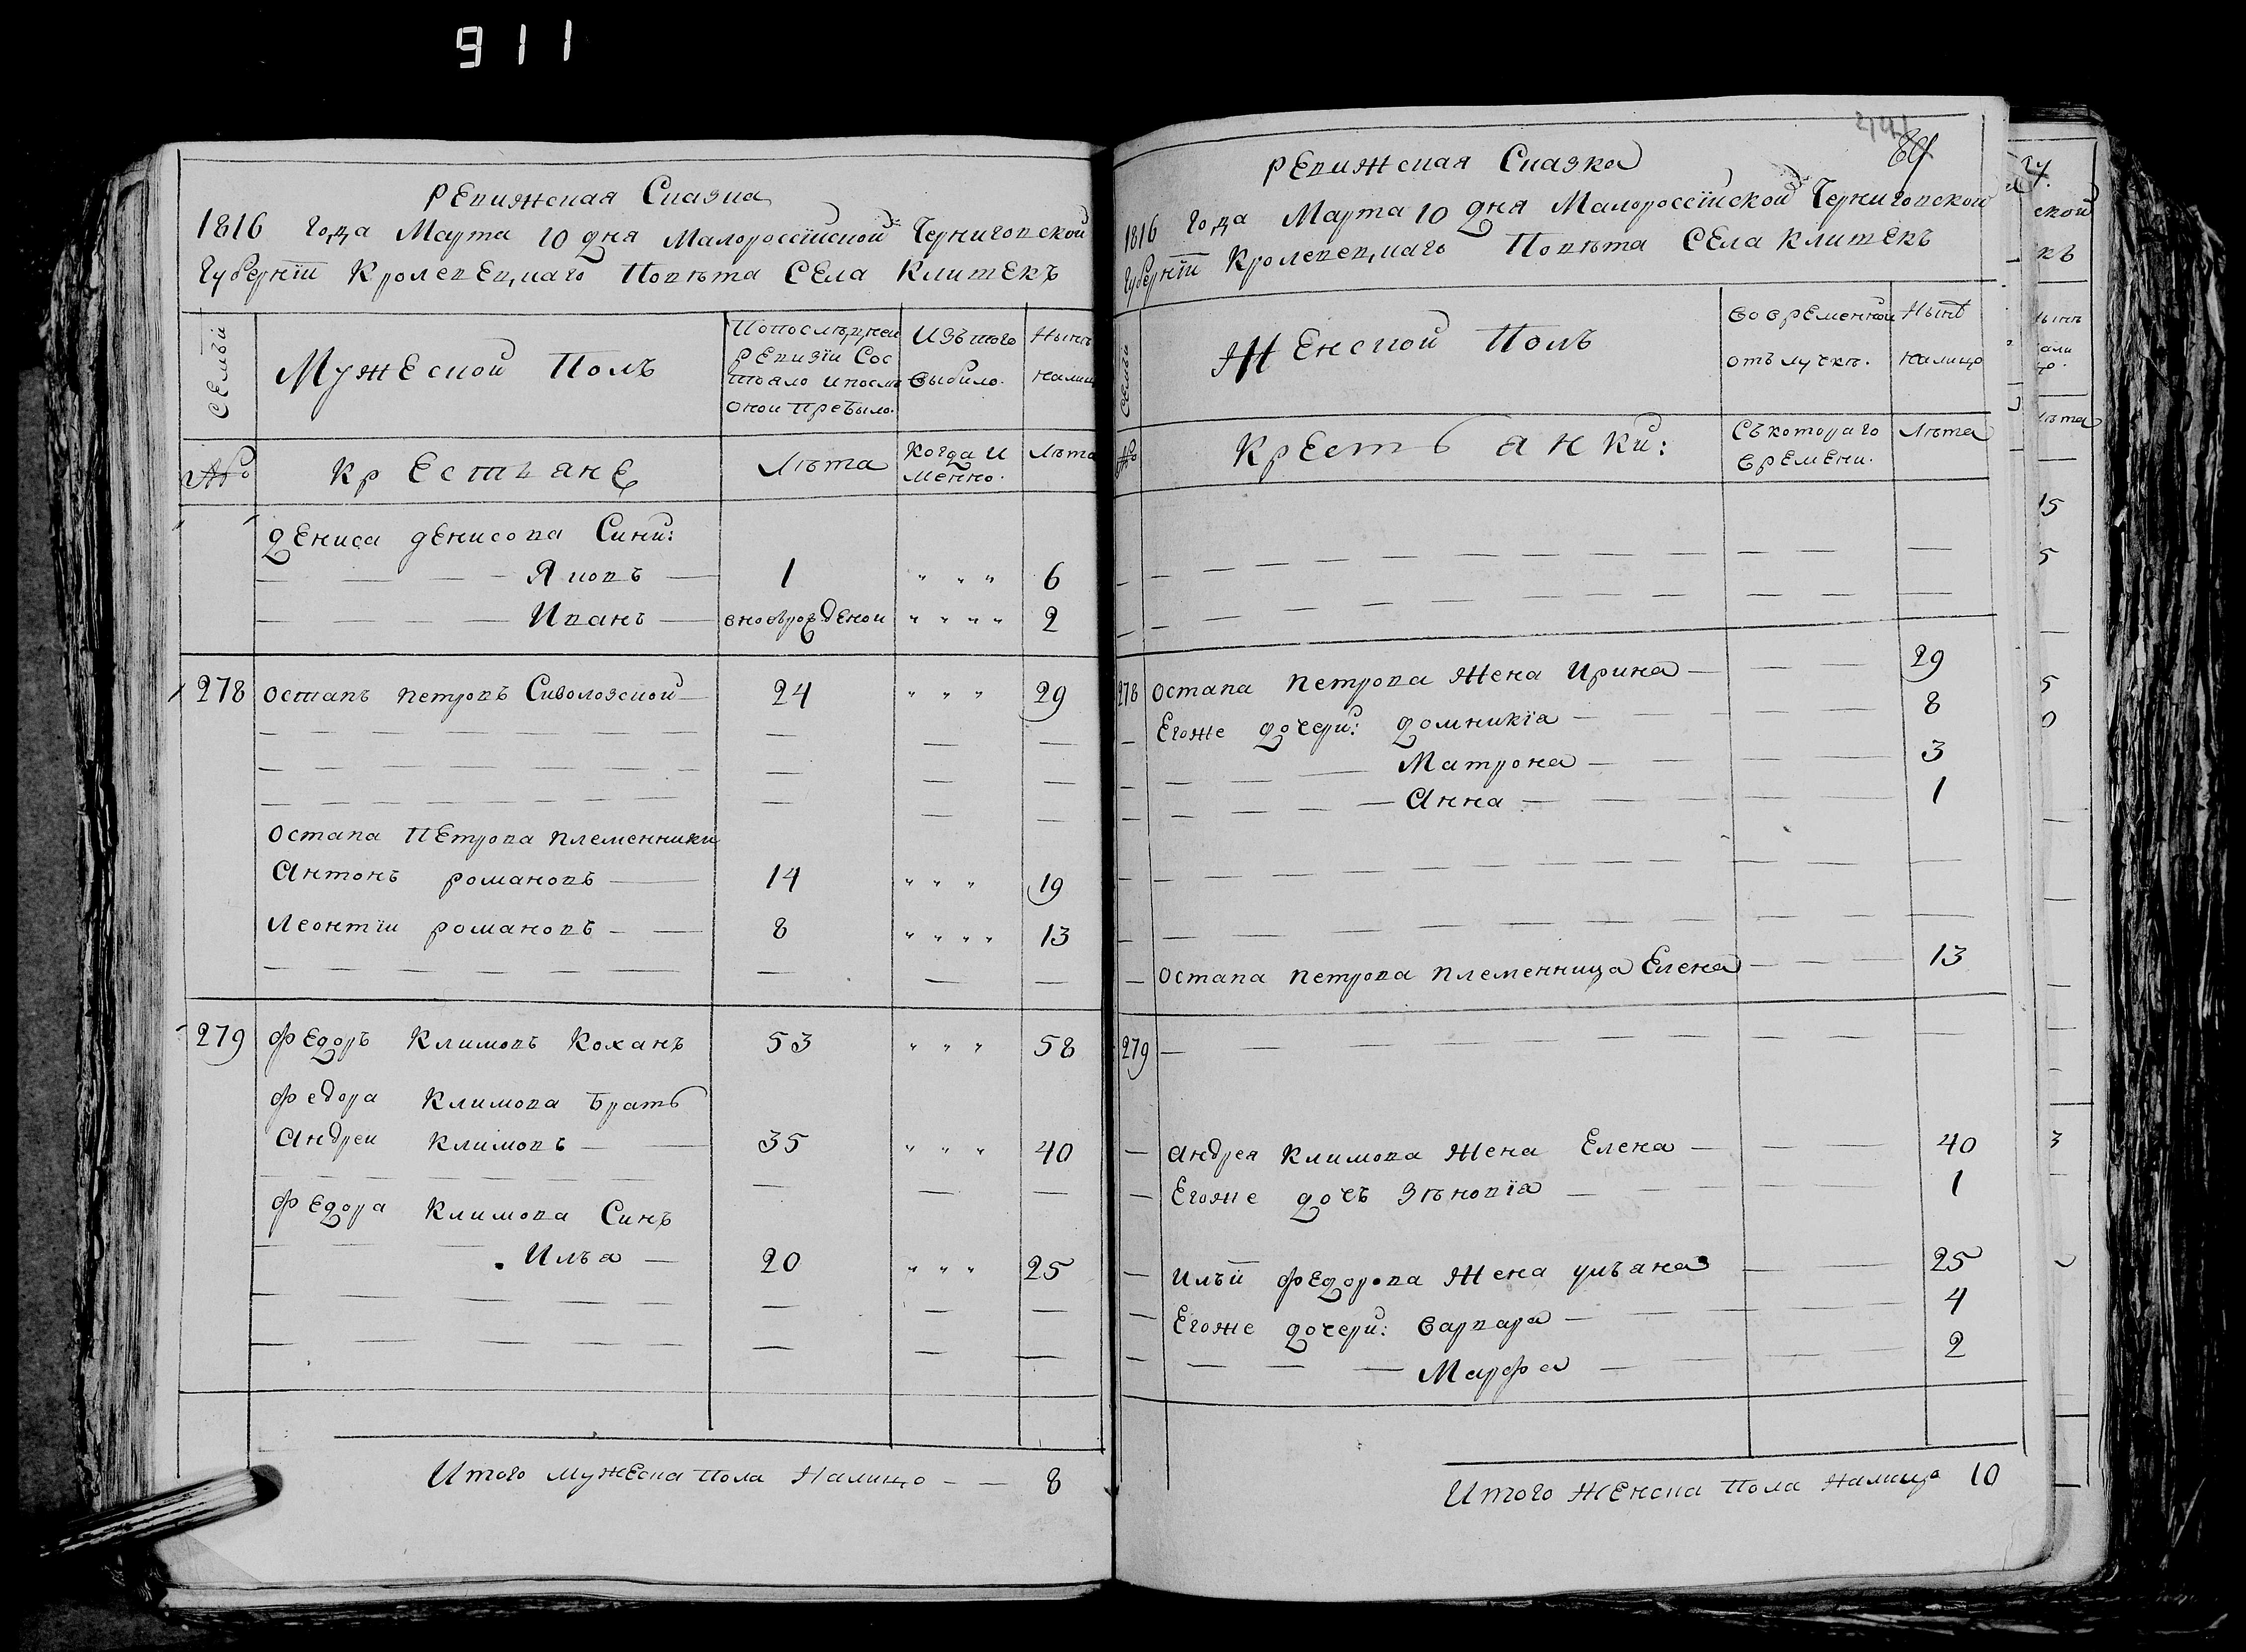 911
РЕвижская Сказка
1816 Года Марта 10 дня Малоросеїиской Черниговской
Губернїи Кролевец,каго Повѣта СЕла КлишЕкъ
СЕмьи
МужЕской Полъ
Ипослѣдней
РЕвизїи Сос
тояло и после
оной прибыло.
Изъ того
выбило.
Нынѣ
налицо
№
КрЕстьянЕ
Лѣта
Когда и
менно.
Лѣта
дЕниса дЕнисова Сини:
Яковъ 1 " " " 6
Иванъ вноврожденои " " " " 2
278 остапъ петровъ Сиволозской 24 " " " 29
остапа пЕтрова племенники
Антонъ романовъ 14 " " " 19
Леонтїи романовъ 8 " " " " 13
279 фЕдоръ Климовъ Коханъ 53 " " " 58
федора Климова братъ
Андреи Климовъ 35 " " " 40
фЕдора Климова Синъ
Илъа 20 " " " 25
Итого мужЕска пола Налицо 8
84
РЕвижская Сказка
1816 Года Марта 10 дня Малоросеїиской Черниговской
Губернїи Кролевец,каго Повѣта СЕла КлишЕкъ
СЕмьи
ЖЕнской Полъ
во врЕменной
отълучкѣ.
Нынѣ
налицо
№
КрЕстьанки:
Съкотораго
врЕмЕни.
Лѣта
278 остапа петрова жена Ирина 29
Егоже дочери: домникїа 8
Матрона 3
Анна 1
остапа петрова племенница Елена 13
279
андрея климова жена Елена 40
Егоже дочъ Зѣновїа 1
Илъїи фЕдорова жена улъана 25
Егоже дочери: варвара 4
Марфа 2
Итого жЕнска пола налицо 10